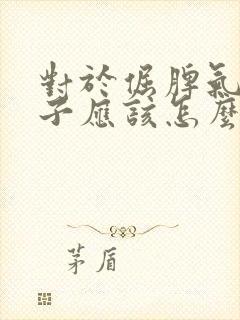 對於倔脾氣
子應該怎麼
茅盾